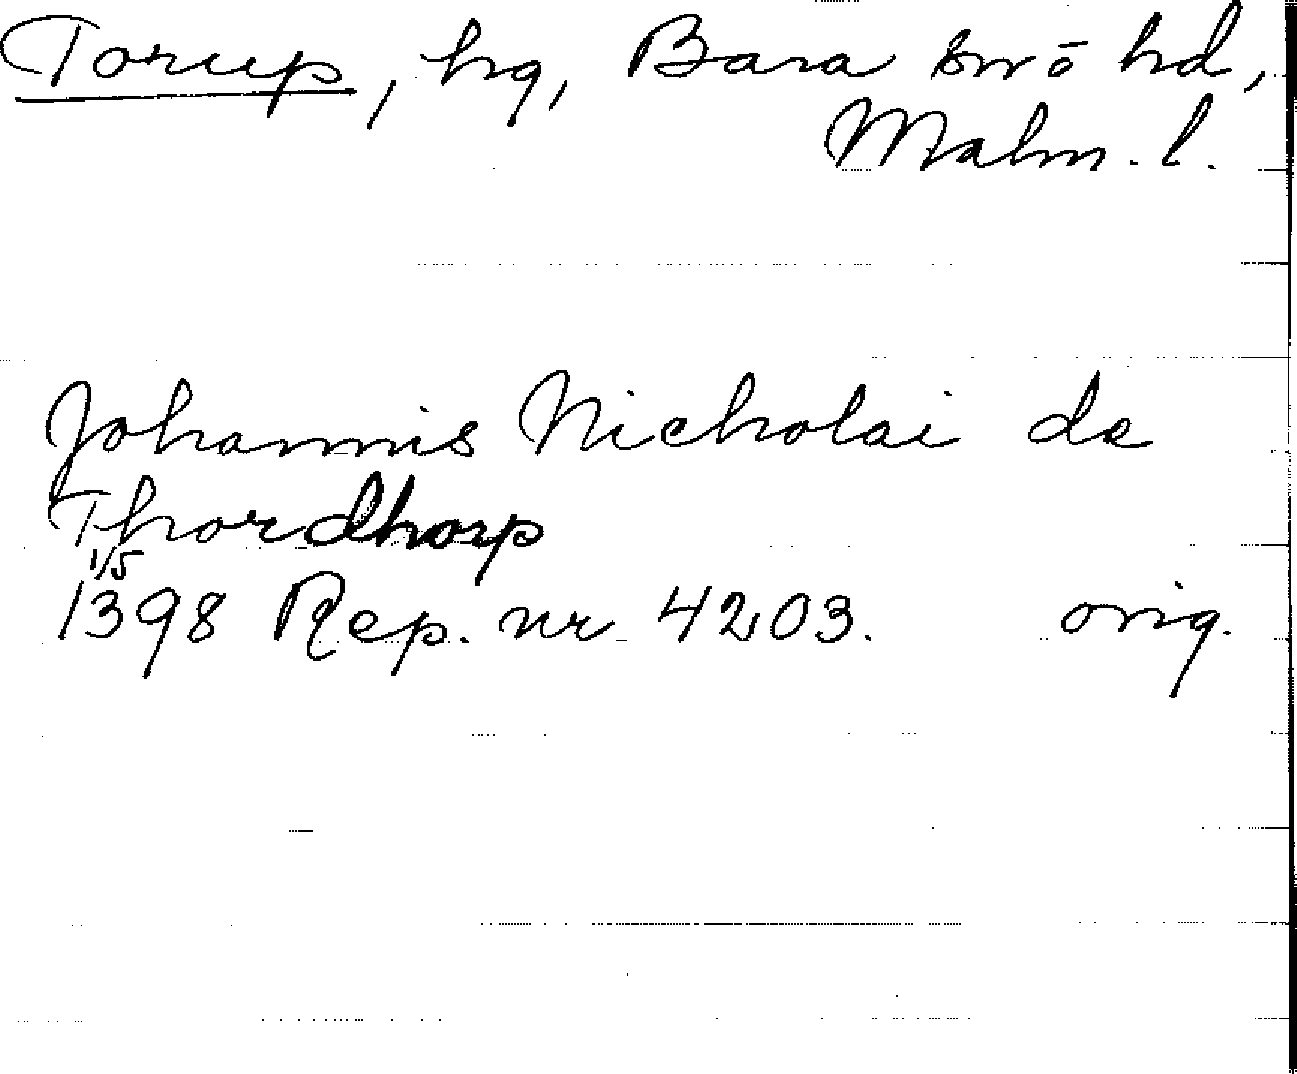 Torup, hg, Bara sn o hd,
Malm. l.
Johannis Nicholai de
Thordhorp
1/5
1398 Rep. nr 4203. orig.